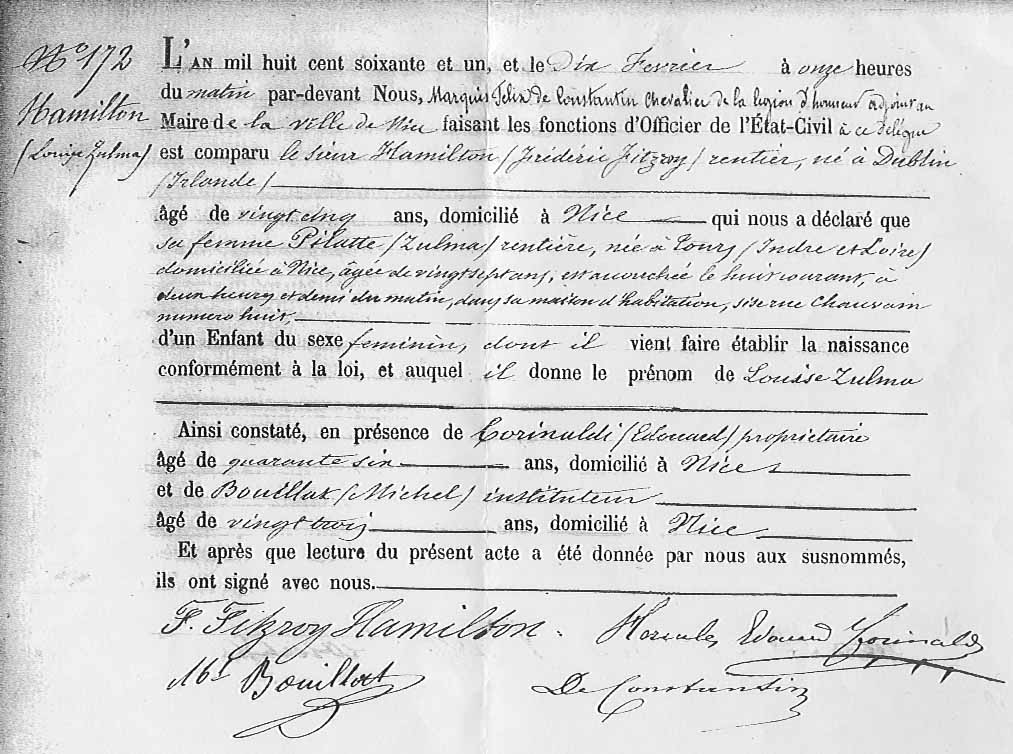 No 172
Hamilton
(Louise Zulma)
L'AN mil huit cent soixante et un, et le Dix Fevrier à onze heures
du matin par-devant Nous, Marquis Felix de Constantin chevalier de la legion d'honneur adjoint au
Maire de la ville de Nice faisant les fonctions d'Officier de l'État-Civil à ce délégué
est comparu le sieur Hamilton (Frédéric Fitzroy) rentier, né à Dublin
(Irlande)
âgé de vingt cinq ans, domicilié à Nice qui nous a déclaré que
sa femme Pilatte (Zulma) rentière, née à Tours (Indre et Loire)
domiciliée à Nice, âgée de vingt sept ans, est accouchée le huit courant, à
deux heures et demi du matin, dans sa maison d'habitation, sise rue Chauvain
numero huit,
d'un Enfant du sexe feminin, dont il vient faire établir la naissance
conformément à la loi, et auquel il donne le prénom de Louise Zulma
Ainsi constaté, en présence de Corinaldi (Edouard) propriétaire
âgé de quarante six ans, domicilié à Nice
et de Bouillat (Michel) instituteur
âgé de vingt trois ans, domicilié à Nice
Et après que lecture du présent acte a été donnée par nous aux susnommés,
ils ont signé avec nous.
F. Fitzroy Hamilton. Hercules Edouard Corinaldi
Mel Bouillat De Constantin